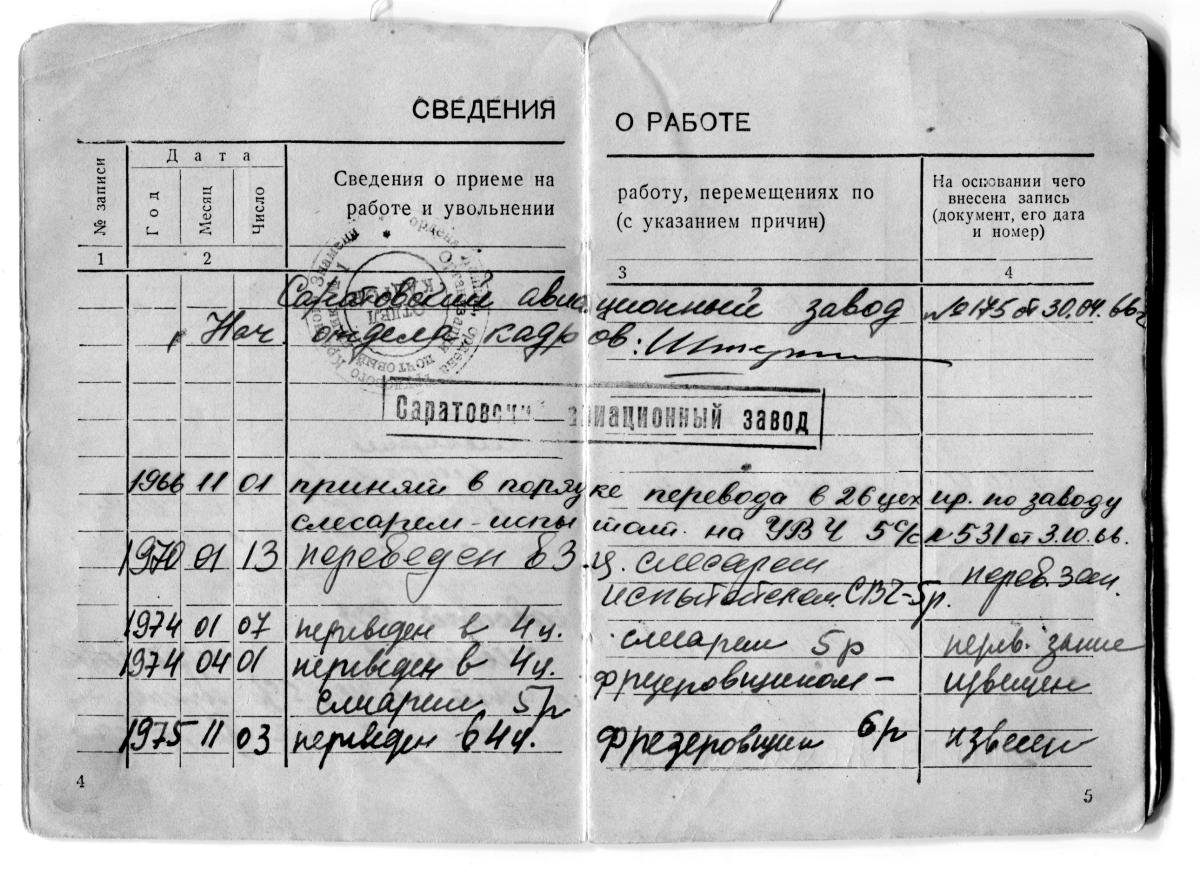 СВЕДЕНИЯ О РАБОТЕ
№ записи
Дата
Год
Месяц
Число
Сведения о приеме на работу, перемещениях по
работе и увольнении (с указанием причин)
На основании чего
внесена запись
(документ, его дата
и номер)
1 2 3 4
Саратовский авиационный завод №175 от 30.04.66г
Нач. отдела кадров:
Саратовский авиационный завод
1966 11 01 принят в порядке перевода в 26 цех пр. по заводу
слесарем-испытат. на УВЧ № 531 от 3.10.66.
1970 01 13 переведен в 3 ц. слесарем
испытателем СВЧ-5р. перев. зап.
1974 01 07 переведен в 4ц. слесарем 5р перев.
1974 04 01 переведен в 4ц. фрезеровщиком- извещен
слесарем 5р
1975 11 03 переведен в 4ц. фрезеровщик 6р извещ
4
5